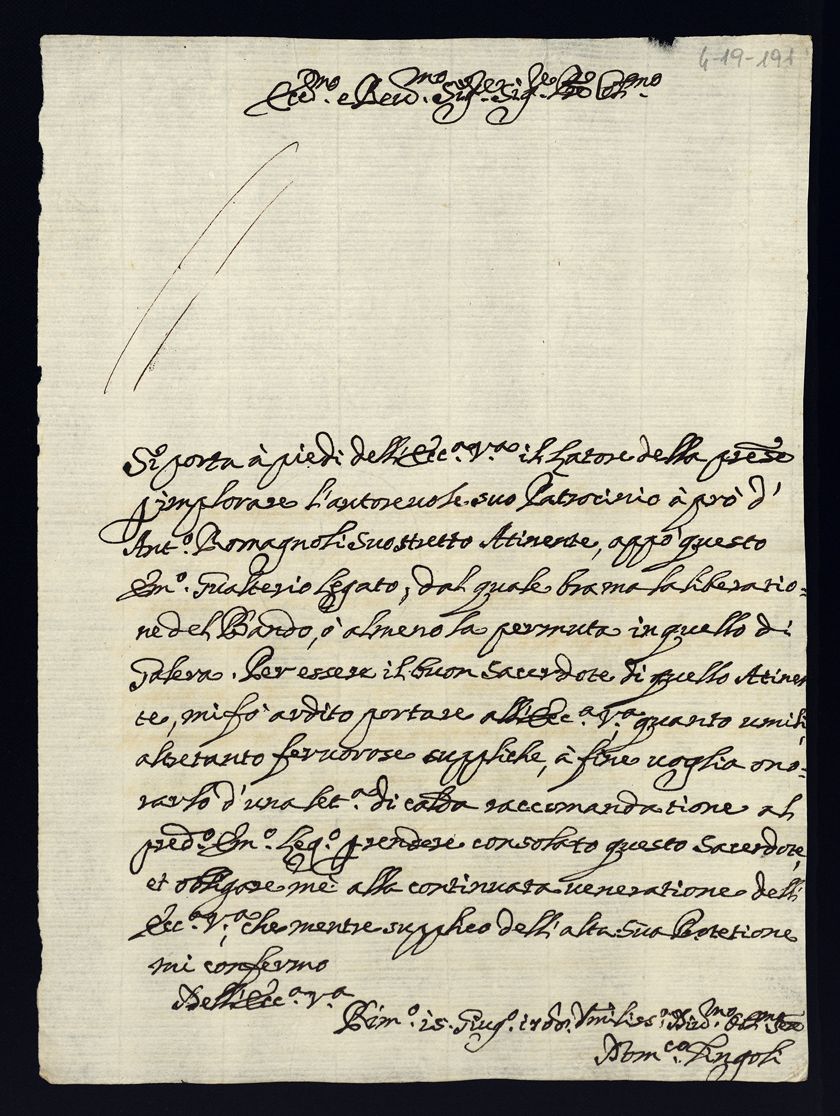 4-19-191
Ecc.mo e Reu.mo Sig.re Sig.re P.rone Col.mo
Si porta à piedi dell'Ecc.a V.a il Latore della pres̃e
p implorare l'autoreuole suo Patrocinio à prò d'
Ant.o Romagnoli suo stretto Atinente, appò questo
Em.o Gualterio Legato, dal quale brama la liberatio-
ne del Bando, ò almeno la permuta in quello di
Galera. Per essere il buon Sacerdote di quello Atinen
te, mi fò ardito portare all'Ecc.a V.a quanto umili,
altretanto feruorose suppliche, à fine uoglia ono-
rarlo d'una let.a di calda raccomandatione al
pred.o Em.o Leg.o p rendere consolato questo Sacerdote,
et obligare me alla continuata ueneratione dell'
Ecc.a V.a, che mentre supplico dell'alta sua Protetione
mi confermo
Dell'Ecc.a V.a
Rim.o 15. Giug.o 1700. Vmiliss.o
Dom.co Lingoli